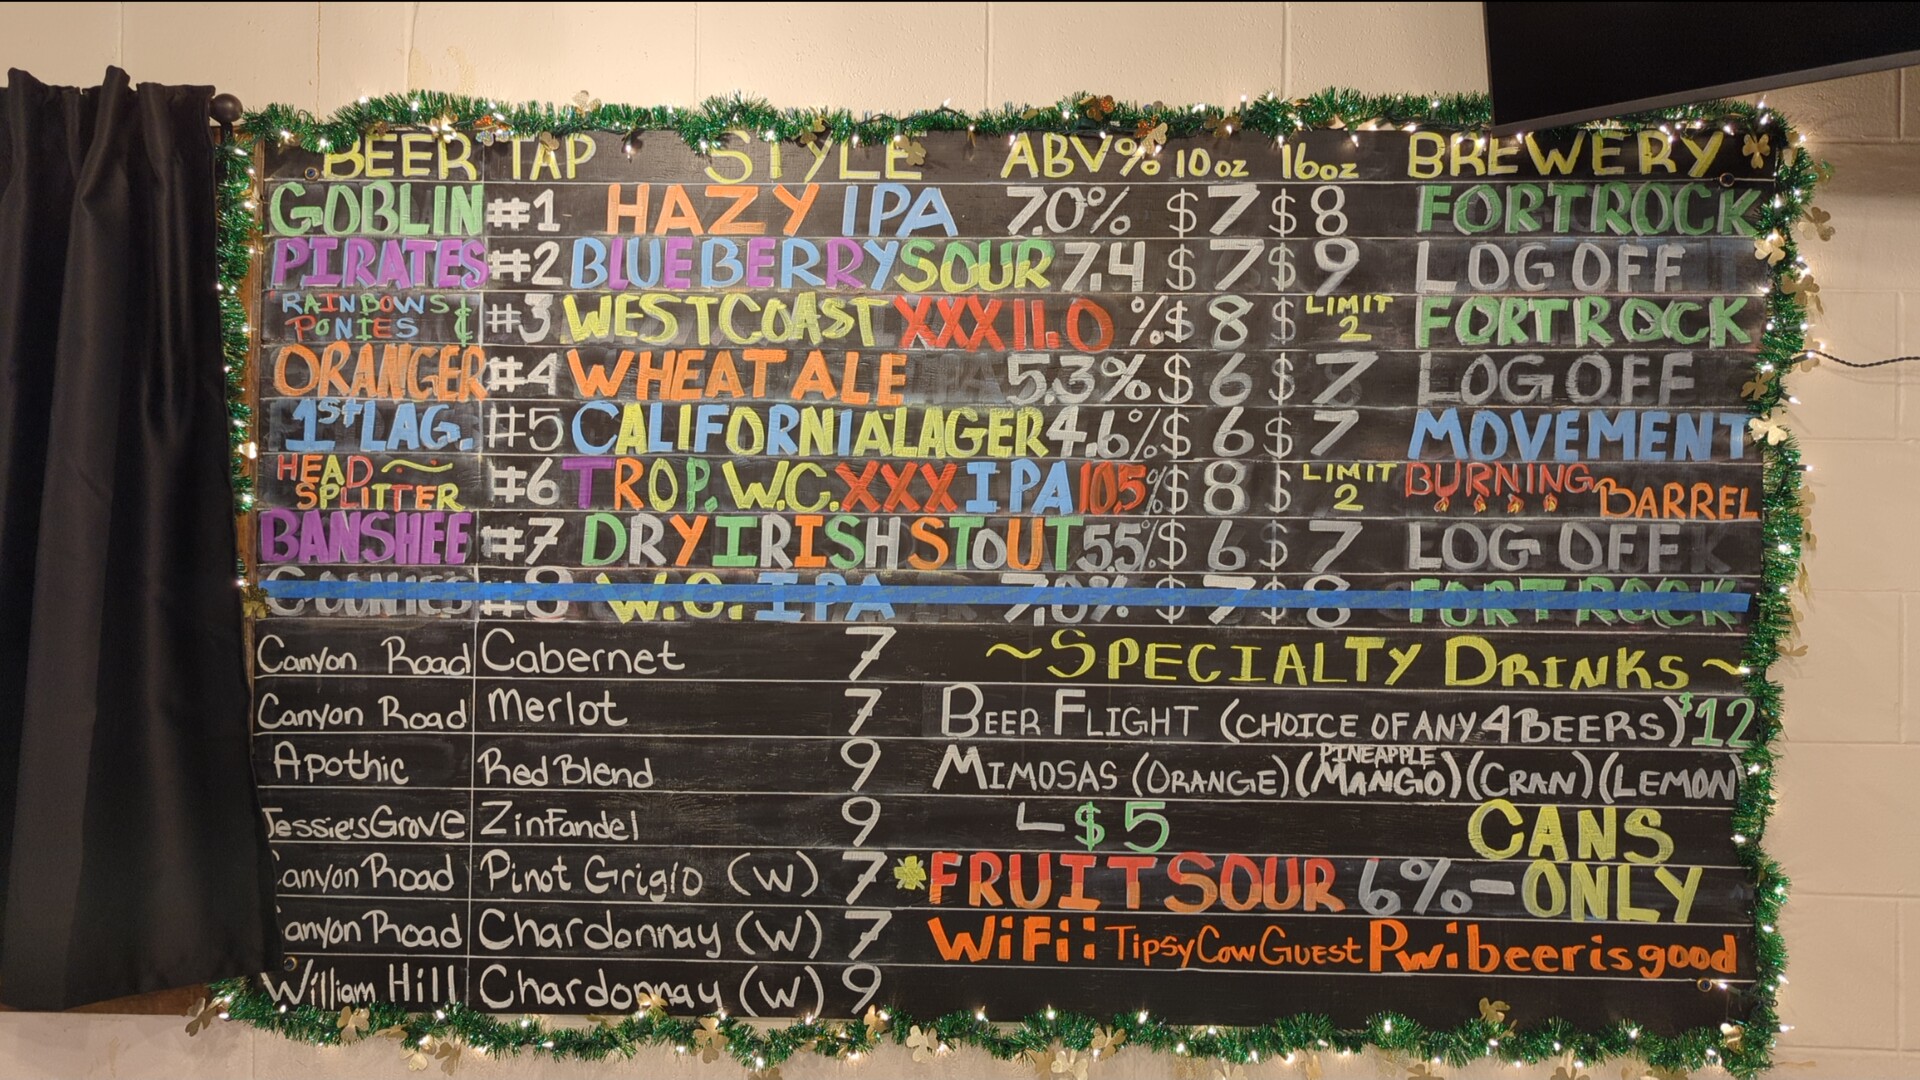 BEER TAP STYLE ABV% 10oz 16oz BREWERY
GOBLIN #1 HAZY IPA 7.0% $7 $8 FORT ROCK
PIRATES #2 BLUEBERRY SOUR 7.4 $7 $9 LOG OFF
RAINBOWS & PONIES #3 WEST COAST XXX 11.0 % $8 $ LIMIT 2 FORT ROCK
ORANGER #4 WHEAT ALE 5.3% $6 $7 LOG OFF
1st LAG. #5 CALIFORNIA LAGER 4.6% $6 $7 MOVEMENT
HEAD SPLITTER #6 TROP. W.C. XXX IPA 10.5% $8 $ LIMIT 2 BURNING BARREL
BANSHEE #7 DRY IRISH STOUT 5.5% $6 $7 LOG OFF
#8 W.C. IPA 7.0% $7 $8 FORT ROCK
Canyon Road Cabernet 7
Canyon Road Merlot 7
Apothic Red Blend 9
Jessie's Grove Zinfandel 9
Canyon Road Pinot Grigio (W) 7
Canyon Road Chardonnay (W) 7
William Hill Chardonnay (W) 9
~SPECIALTY DRINKS~
BEER FLIGHT (CHOICE OF ANY 4 BEERS) $12
MIMOSAS (ORANGE) (PINEAPPLE MANGO) (CRAN) (LEMON)
$5
CANS
FRUIT SOUR 6% - ONLY
WiFi: TipsyCowGuest Pw: beerisgood